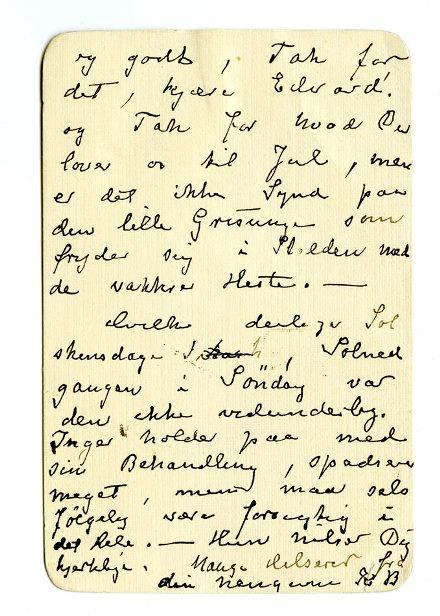 og godt, Tak for
det, kjære Edvard!
og Tak for hvad Du
lover os til Jul, men
er det ikke Synd paa
den lille Grisunge som
fryder sig i Stalden med
de vakkre Heste. —
Hvilke deilige Sol
skinsdage, Solned
gangen i Söndag var
den ikke vidunderlig.
Inger holder paa med
sin Behandling, spadserer
meget, men maa selv
fölgelig være forsigtig i
det Hele. — Hun hilser Dig
hjerteligt. Mange Hilsener fra
din hengivne B